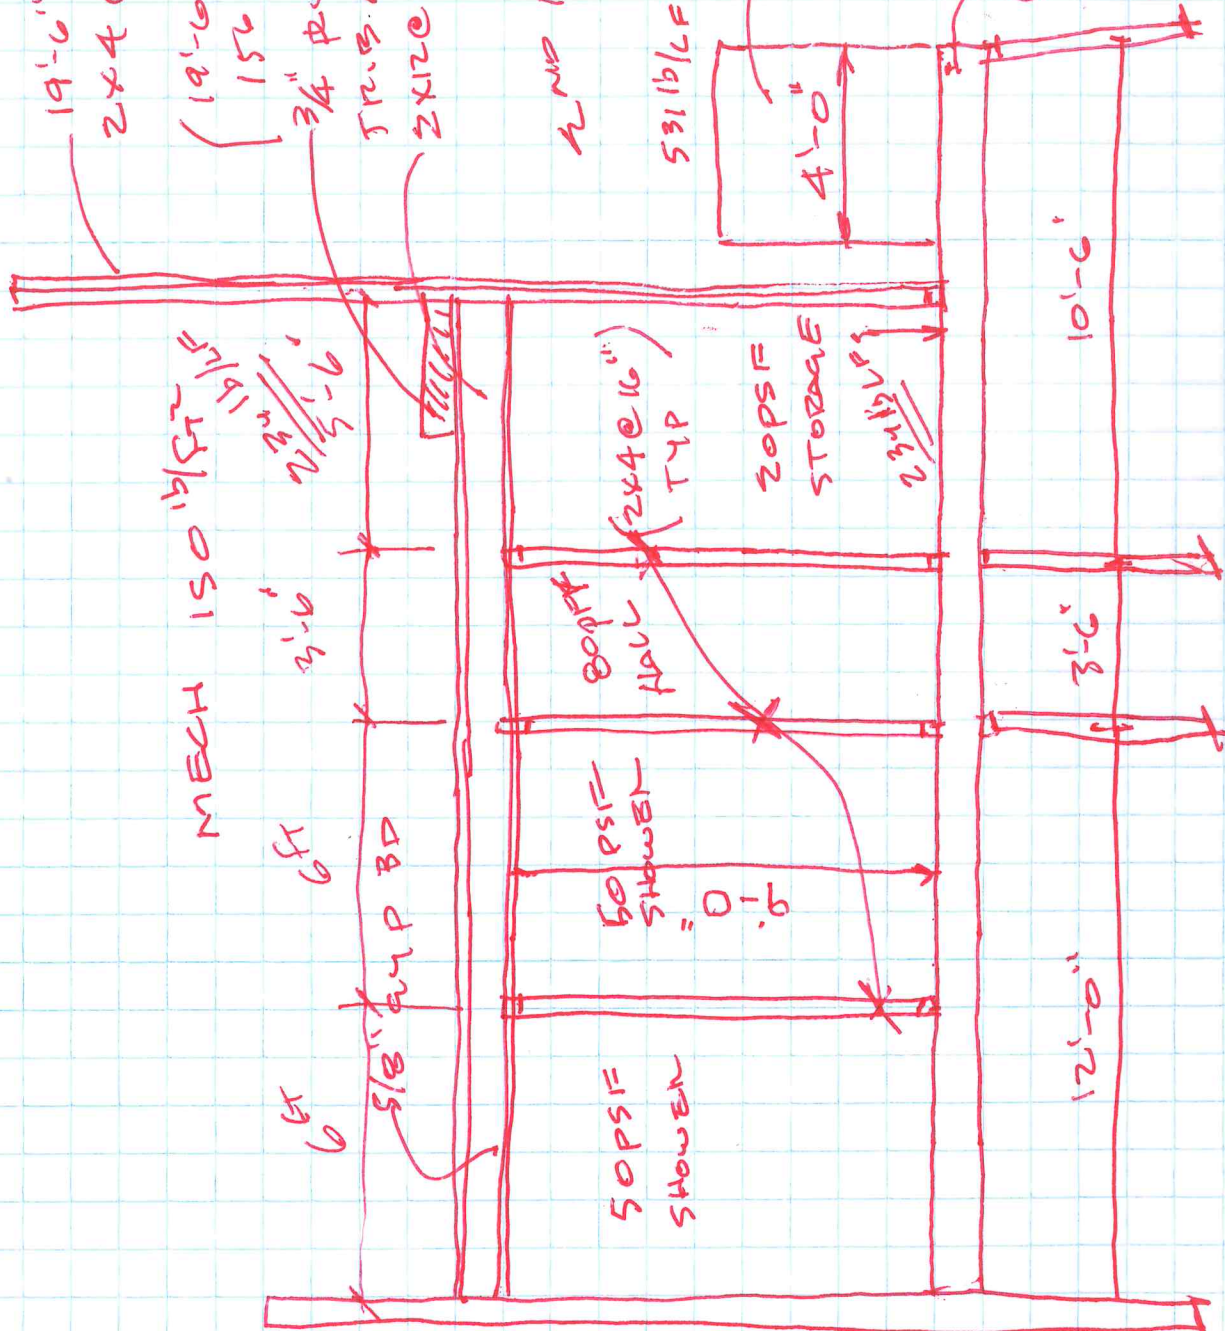 19'-6"
2X4
(19'-6
156
3/4"
2X12@
2 ND
531 lb/LF
4'-0"
MECH 150 lb/FT²
234 lb/LF
5'-6"
3'-6"
6 FT
6 FT
5/8" GYP BD
(2X4@16")
TYP
20PSF
STORAGE
80PSF
HALL
50 PSF
SHOWER
9'-0"
50PSF
SHOWER
10'-6"
3'-6"
12'-0"